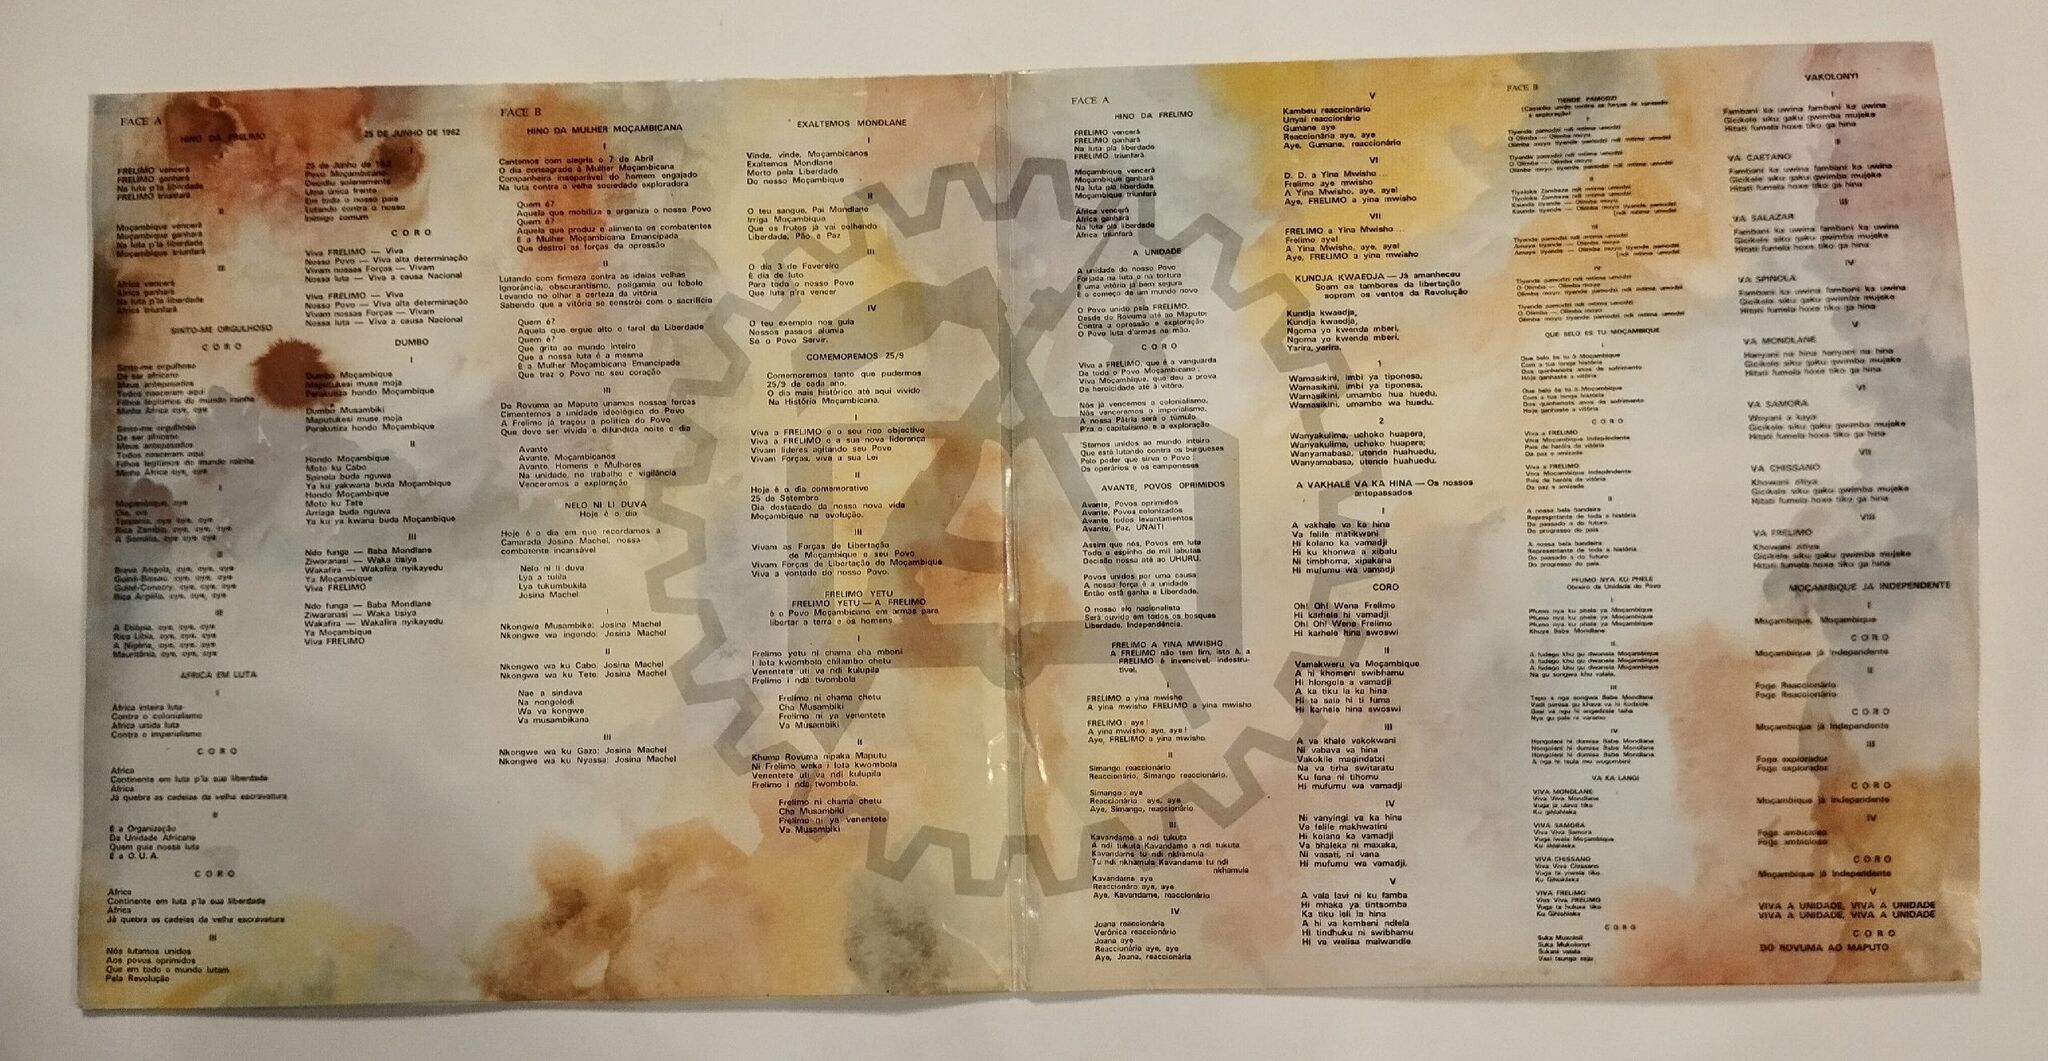 FACE A
HINO DA FRELIMO
I
FRELIMO vencerá
FRELIMO ganhará
Na luta p'la liberdade
FRELIMO triunfará
II
Moçambique vencerá
Moçambique ganhará
Na luta p'la liberdade
Moçambique triunfará
III
África vencerá
África ganhará
Na luta p'la liberdade
África triunfará
SINTO-ME ORGULHOSO
CORO
Sinto-me orgulhoso
De ser africano
Meus antepassados
Todos nasceram aqui
Filhos legítimos do mundo rainha
Minha África oye, oye
Sinto-me orgulhoso
De ser africano
Meus antepassados
Todos nasceram aqui
Filhos legítimos do mundo rainha
Minha África oye, oye
I
Moçambique, oye
Oie, oie
Tanzania, oye, oye, oye
Rica Zambia, oye, oye, oye
A Somália, oye, oye, oye
II
Brava Angola, oye, oye
Guiné-Bissau, oye, oye
Guiné-Conacry, oye, oye
Rica Argélia, oye, oye
III
A Etiópia, oye, oye, oye
Rica Líbia, oye, oye, oye
A Nigéria, oye, oye, oye
Mauritânia, oye, oye, oye
ÁFRICA EM LUTA
I
África inteira luta
Contra o colonialismo
África unida luta
Contra o imperialismo
CORO
África
Continente em luta p'la sua liberdade
África
Já quebra as cadeias da velha escravatura
II
É a Organização
Da Unidade Africana
Quem guia nossa luta
É a O. U. A.
CORO
África
Continente em luta p'la sua liberdade
África
Já quebra as cadeias da velha escravatura
III
Nós lutamos unidos
Aos povos oprimidos
Que em todo o mundo lutam
Pela Revolução
25 DE JUNHO DE 1962
I
25 de Junho de 1962
Povo Moçambicano
Decidiu solenemente
Uma única frente
Em todo o nosso país
Lutando contra o nosso
Inimigo comum
CORO
Viva FRELIMO — Viva
Nosso Povo — Viva alta determinação
Vivam nossas Forças — Vivam
Nossa luta — Viva a causa Nacional
Viva FRELIMO — Viva
Nosso Povo — Viva alta determinação
Vivam nossas Forças — Vivam
Nossa luta — Viva a causa Nacional
DUMBO
I
Dumbo Moçambique
Maputukesi muse moja
Parakutiza hondo Moçambique
Dumbo Musambiki
Maputukesi muse moja
Parakutiza hondo Moçambique
II
Hondo Moçambique
Moto ku Cabo
Spinola buda nguwa
Ya ku yakwana buda Moçambique
Hondo Moçambique
Moto ku Tete
Arriaga buda nguwa
Ya ku ya kwana buda Moçambique
III
Ndo funga — Baba Mondlane
Ziwaranasi — Waka tisiya
Wakafira — Wakafira nyikayedu
Ya Moçambique
Viva FRELIMO
Ndo funga — Baba Mondlane
Ziwaranasi — Waka tisiya
Wakafira — Wakafira nyikayedu
Ya Moçambique
Viva FRELIMO
FACE B
HINO DA MULHER MOÇAMBICANA
I
Cantemos com alegria o 7 de Abril
O dia consagrado à Mulher Moçambicana
Companheira inseparável do homem engajado
Na luta contra a velha sociedade exploradora
Quem é?
Aquela que mobiliza e organiza o nosso Povo
Quem é?
Aquela que produz e alimenta os combatentes
É a Mulher Moçambicana Emancipada
Que destrói as forças da opressão
II
Lutando com firmeza contra as ideias velhas
Ignorância, obscurantismo, poligamia ou lobolo
Levando no olhar a certeza da vitória
Sabendo que a vitória se constrói com o sacrifício
Quem é?
Aquela que ergue alto o farol da Liberdade
Quem é?
Que grita ao mundo inteiro
Que a nossa luta é a mesma
É a Mulher Moçambicana Emancipada
Que traz o Povo no seu coração
III
Do Rovuma ao Maputo unamos nossas forças
Cimentemos a unidade ideológica do Povo
A Frelimo já traçou a política do Povo
Que deve ser vivida e difundida noite e dia
Avante
Avante, Moçambicanos
Avante, Homens e Mulheres
Na unidade, no trabalho e vigilância
Venceremos a exploração
NELO NI LI DUVA
Hoje é o dia
Hoje é o dia em que recordamos a
Camarada Josina Machel, nossa
combatente incansável
Nelo ni li duva
Lya a tulila
Lya tukumbukila
Josina Machel
I
Nkongwe Musambike: Josina Machel
Nkongwe wa ingondo: Josina Machel
II
Nkongwe wa ku Cabo: Josina Machel
Nkongwe wa ku Tete: Josina Machel
Nae a sindava
Na nongoledi
Wa va kongwe
Va musambikana
III
Nkongwe wa ku Gaza: Josina Machel
Nkongwe wa ku Nyassa: Josina Machel
EXALTEMOS MONDLANE
I
Vinde, vinde, Moçambicanos
Exaltemos Mondlane
Morto pela Liberdade
Do nosso Moçambique
II
O teu sangue, Pai Mondlane
Irriga Moçambique
Que os frutos já vai colhendo
Liberdade, Pão e Paz
III
O dia 3 de Fevereiro
É dia de luto
Para todo o nosso Povo
Que luta p'ra vencer
IV
O teu exemplo nos guia
Nossos passos alumia
Só o Povo Servir.
COMEMOREMOS 25/9
Comemoremos tanto que pudermos
25/9 de cada ano,
O dia mais histórico até aqui vivido
Na História Moçambicana.
I
Viva a FRELIMO e o seu rico objectivo
Viva a FRELIMO e a sua nova liderança
Vivam líderes agitando seu Povo
Vivam Forças, viva a sua Lei
II
Hoje é o dia comemorativo
25 de Setembro
Dia destacado da nossa nova vida
Moçambique na evolução.
III
Vivam as Forças de Libertação
de Moçambique e seu Povo
Vivam Forças de Libertação de Moçambique
Viva a vontade do nosso Povo.
FRELIMO YETU
FRELIMO YETU — A FRELIMO
é o Povo Moçambicano em armas para
libertar a terra e os homens
I
Frelimo yetu ni chama cha mboni
I lota kwombola chilambo chetu
Venentete uti va ndi kulupila
Frelimo i nda twombola
Frelimo ni chama chetu
Cha Musambiki
Frelimo ni ya venentete
Va Musambiki
II
Khuma Rovuma nipaka Maputu
Ni Frelimo weka i lota kwombola
Venentete uti va ndi kulupila
Frelimo i nda twombola.
Frelimo ni chama chetu
Cha Musambiki
Frelimo ni ya venentete
Va Musambiki
FACE A
HINO DA FRELIMO
FRELIMO vencerá
FRELIMO ganhará
Na luta pla liberdade
FRELIMO triunfará
Moçambique vencerá
Moçambique ganhará
Na luta pla liberdade
Moçambique triunfará
África vencerá
África ganhará
Na luta pla liberdade
África triunfará
A UNIDADE
A unidade do nosso Povo
Forjada na luta e na tortura
É uma vitória já bem segura
É o começo de um mundo novo
O Povo unido pela FRELIMO,
Desde do Rovuma até ao Maputo;
Contra a opressão e exploração
O Povo luta d'armas na mão.
CORO
Viva a FRELIMO, que é a vanguarda
De todo o Povo Moçambicano;
Viva Moçambique, que deu a prova
Da heroicidade até à vitória.
Nós já vencemos o colonialismo,
Nós venceremos o imperialismo,
A nossa Pátria será o túmulo
P'ra o capitalismo e a exploração
'Stamos unidos ao mundo inteiro
Que está lutando contra os burgueses
Pelo poder que sirva o Povo:
Os operários e os camponeses
AVANTE, POVOS OPRIMIDOS
Avante, Povos oprimidos
Avante, Povos colonizados
Avante todos levantamentos
Avante, Paz, UNAITI
Assim que nós, Povos em luta
Todo o espinho de mil labutas
Decisão nossa até ao UHURU.
Povos unidos por uma causa
A nossa força é a unidade
Então está ganha a Liberdade.
O nosso elo nacionalista
Será ouvido em todos os bosques
Liberdade, Independência.
FRELIMO A YINA MWISHO
A FRELIMO não tem fim, isto é, a
FRELIMO é invencível, indestru-
tível.
I
FRELIMO a yina mwisho
A yina mwisho, FRELIMO a yina mwisho
FRELIMO: aye!
A yina mwisho, aye, aye!
Aye, FRELIMO a yina mwisho
II
Simango reaccionário
Reaccionário, Simango reaccionário.
Simango: aye
Reaccionário: aye, aye
Aye, Simango, reaccionário
III
Kavandame a ndi tukuta
A ndi tukuta Kavandame a ndi tukuta
Kavandame tu ndi nkhamula
Tu ndi nkhamula Kavandame tu ndi
nkhamula
Kavandame aye
Reaccionáro aye, aye
Aye, Kavandame, reaccionário
IV
Joana reaccionária
Verônica reaccionário
Joana aye
Reaccionária aye, aye
Aye, Joana, reaccionária
V
Kambeu reaccionário
Unyai reaccionário
Gumane aye
Reaccionária aye, aye
Aye, Gumane, reaccionário
VI
D. D. a Yina Mwisho ...
Frelimo aye mwisho
A Yina Mwisho, aye, aye!
Aye, FRELIMO a yina mwisho
VII
FRELIMO a Yina Mwisho ...
Frelimo aye!
A Yina Mwisho, aye, aye!
Aye, FRELIMO a yina mwisho
KUNDJA KWAEDJA — Já amanheceu
Soam os tambores da libertação
sopram os ventos da Revolução
Kundja kwaedja,
Kundja kwaedja,
Ngoma yo kwenda mberi,
Ngoma yo kwenda mberi,
Yarira, yarira.
1
Wamasikini, imbi ya tiponesa,
Wamasikini, imbi ya tiponesa,
Wamasikini, umambo hua huedu,
Wamasikini, umambo wa huedu.
2
Wanyakulima, uchoko huapera,
Wanyakulima, uchoko huapera;
Wanyamabasa, utende huahuedu,
Wanyamabasa, utende huahuedu.
A VAKHALE VA KA HINA — Os nossos
antepassados
I
A vakhale va ka hina
Va felile matikweni
Hi kolano ka vamadji
Hi ku khonwa a xibalu
Ni timbhoma, xipakana
Hi mufumu wa vamadji
CORO
Oh! Oh! Wena Frelimo
Hi karhele hi vamadji
Oh! Oh! Wena Frelimo
Hi karhele hina swoswi
II
Vamakweru va Moçambique
A hi khomeni swibhamu
Hi hlongole a vamadji
A ka tiku la ka hina
Hi ta sala hi ti fuma
Hi karhele hina swoswi
III
A va khale vokokwani
Ni vabava va hina
Vakokile magindatxi
Na va tirha switaratu
Ku fana ni tihomu
Hi mufumu wa vamadji
IV
Ni vanyingi va ka hina
Va felile makhwatini
Hi kolano ka vamadji
Va bhaleka ni maxaka,
Ni vasati, ni vana
Hi mufumu wa vamadji.
V
A vala lavi ni ku famba
Hi mhaka ya tintsomba
Ka tiku leli la hina
A hi va kombeni ndlela
Hi tindhuku ni swibhamu
Hi va welisa malwandle
FACE B
TIENDE PAMODZI
I
Tiyende pamodzi ndi mtima umodzi
II
III
IV
QUE BELO ES TU MOÇAMBIQUE
I
Que belo és tu ó Moçambique
Com a tua longa história
Dos quinhentos anos de sofrimento
Hoje ganhaste a vitória
Que belo és tu ó Moçambique
Com a tua longa história
Dos quinhentos anos de sofrimento
Hoje ganhaste a vitória
CORO
Viva a FRELIMO
Viva Moçambique Independente
País de heróis da vitória
Da paz e amizade
Viva a FRELIMO
Viva Moçambique Independente
País de heróis da vitória
Da paz e amizade
II
A nossa bela bandeira
Representante de toda a história
Do passado e do futuro
Do progresso do país
A nossa bela bandeira
Representante de toda a história
Do passado e do futuro
Do progresso do país
PFUMO NYA KU PHELE
Obreiro da Unidade do Povo
I
Pfumo nya ku phele ya Moçambique
Pfumo nya ku phele ya Moçambique
Pfumo nya ku phele ya Moçambique
Khuya Babe Mondlane
II
III
IV
VA KA LANGI
VIVA MONDLANE
Viva Viva Mondlane
VIVA SAMORA
Viva Viva Samora
VIVA CHISSANO
Viva Viva Chissano
VIVA FRELIMO
Viva Viva FRELIMO
CORO
VAKOLONYI
I
Fambani ka uwina fambani ka uwina
Gicikele siku gaku gwimba mujeke
Hitati fumela hoxe tiko ga hina
II
VA CAETANO
Fambani ka uwina fambani ka uwina
Gicikele siku gaku gwimba mujeke
Hitati fumela hoxe tiko ga hina
III
VA SALAZAR
Fambani ka uwina fambani ka uwina
Gicikele siku gaku gwimba mujeke
Hitati fumela hoxe tiko ga hina
IV
VA SPINOLA
Fambani ka uwina fambani ka uwina
Gicikele siku gaku gwimba mujeke
Hitati fumela hoxe tiko ga hina
V
VA MONDLANE
Hanyani na hina hanyani na hina
Gicikele siku gaku gwimba mujeke
Hitati fumela hoxe tiko ga hina
VI
VA SAMORA
Woyani a kaya
Gicikele siku gaku gwimba mujeke
Hitati fumela hoxe tiko ga hina
VII
VA CHISSANO
Khowani
Gicikele siku gaku gwimba mujeke
Hitati fumela hoxe tiko ga hina
VIII
VA FRELIMO
Khowani
Gicikele siku gaku gwimba mujeke
Hitati fumela hoxe tiko ga hina
MOÇAMBIQUE JÁ INDEPENDENTE
I
Moçambique, Moçambique
CORO
Moçambique já Independente
II
Fogo Reaccionário
Fogo Reaccionário
CORO
Moçambique já Independente
III
Fogo explorador
Fogo explorador
CORO
Moçambique já Independente
IV
Fogo ambicioso
Fogo ambicioso
CORO
Moçambique já Independente
V
VIVA A UNIDADE, VIVA A UNIDADE
VIVA A UNIDADE, VIVA A UNIDADE
CORO
DO ROVUMA AO MAPUTO